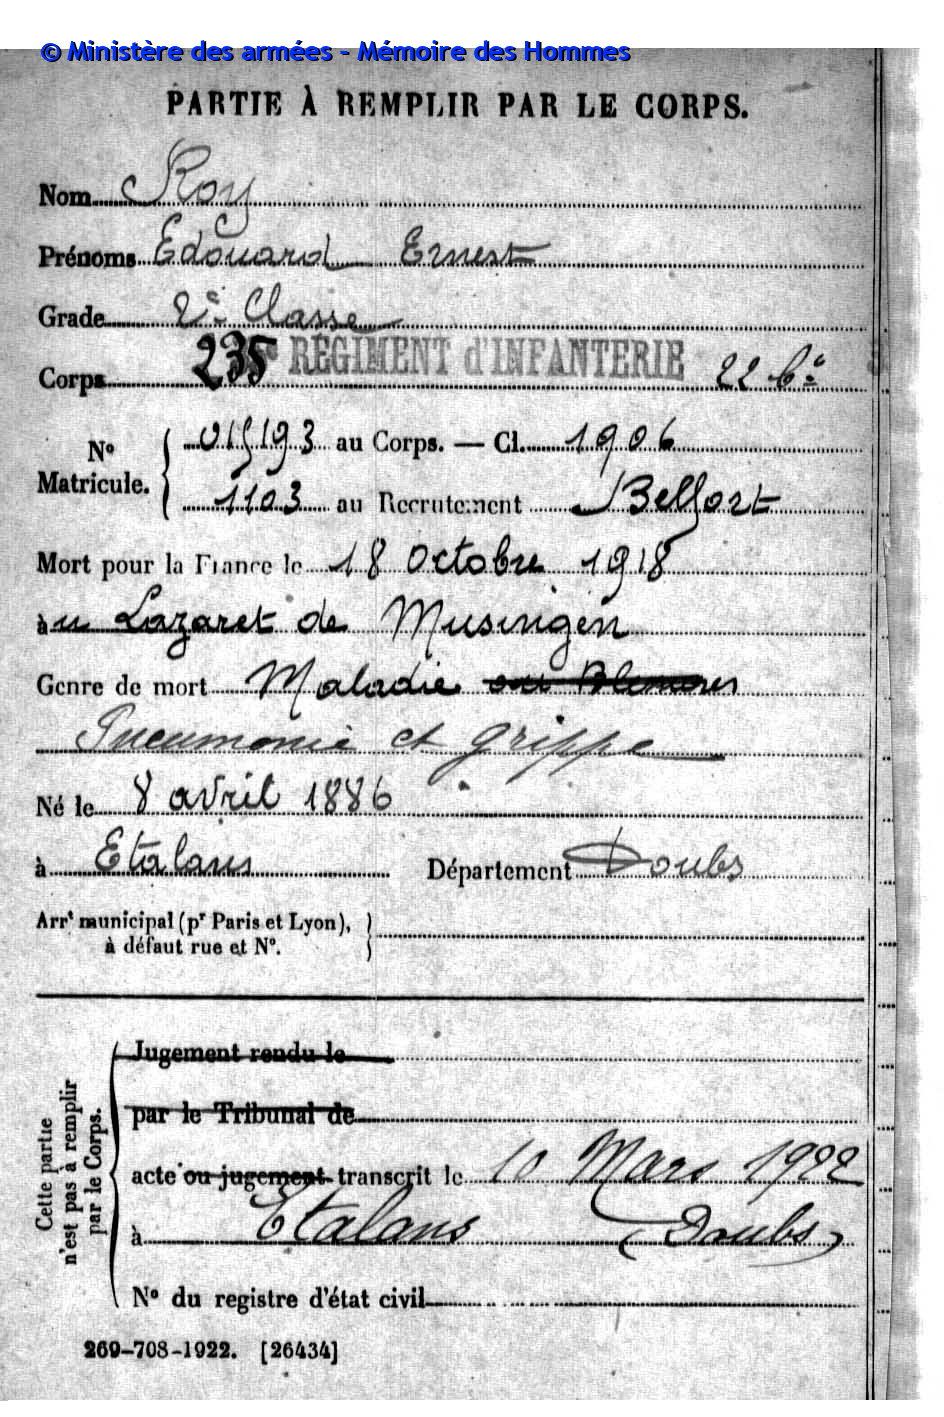 © Ministère des armées - Mémoire des Hommes
PARTIE À REMPLIR PAR LE CORPS.
Nom Roy
Prénoms Edouard Ernest
Grade 2e Classe
Corps 235 RÉGIMENT d'INFANTERIE 22 Cie
No Matricule. 015193 au Corps. — Cl. 1906
1103 au Recrutement Belfort
Mort pour la France le 18 Octobre 1918
à u Lazaret de Musingen
Genre de mort Maladie ou Blessures
Pneumonie et grippe
Né le 8 avril 1886
à Etalans Département Doubs
Arrt municipal (pr Paris et Lyon),
à défaut rue et No.
Cette partie
n'est pas à remplir
par le Corps.
Jugement rendu le
par le Tribunal de
acte ou jugement transcrit le 10 Mars 1922
à Etalans (Doubs)
No du registre d'état civil
269-708-1922. [26434]